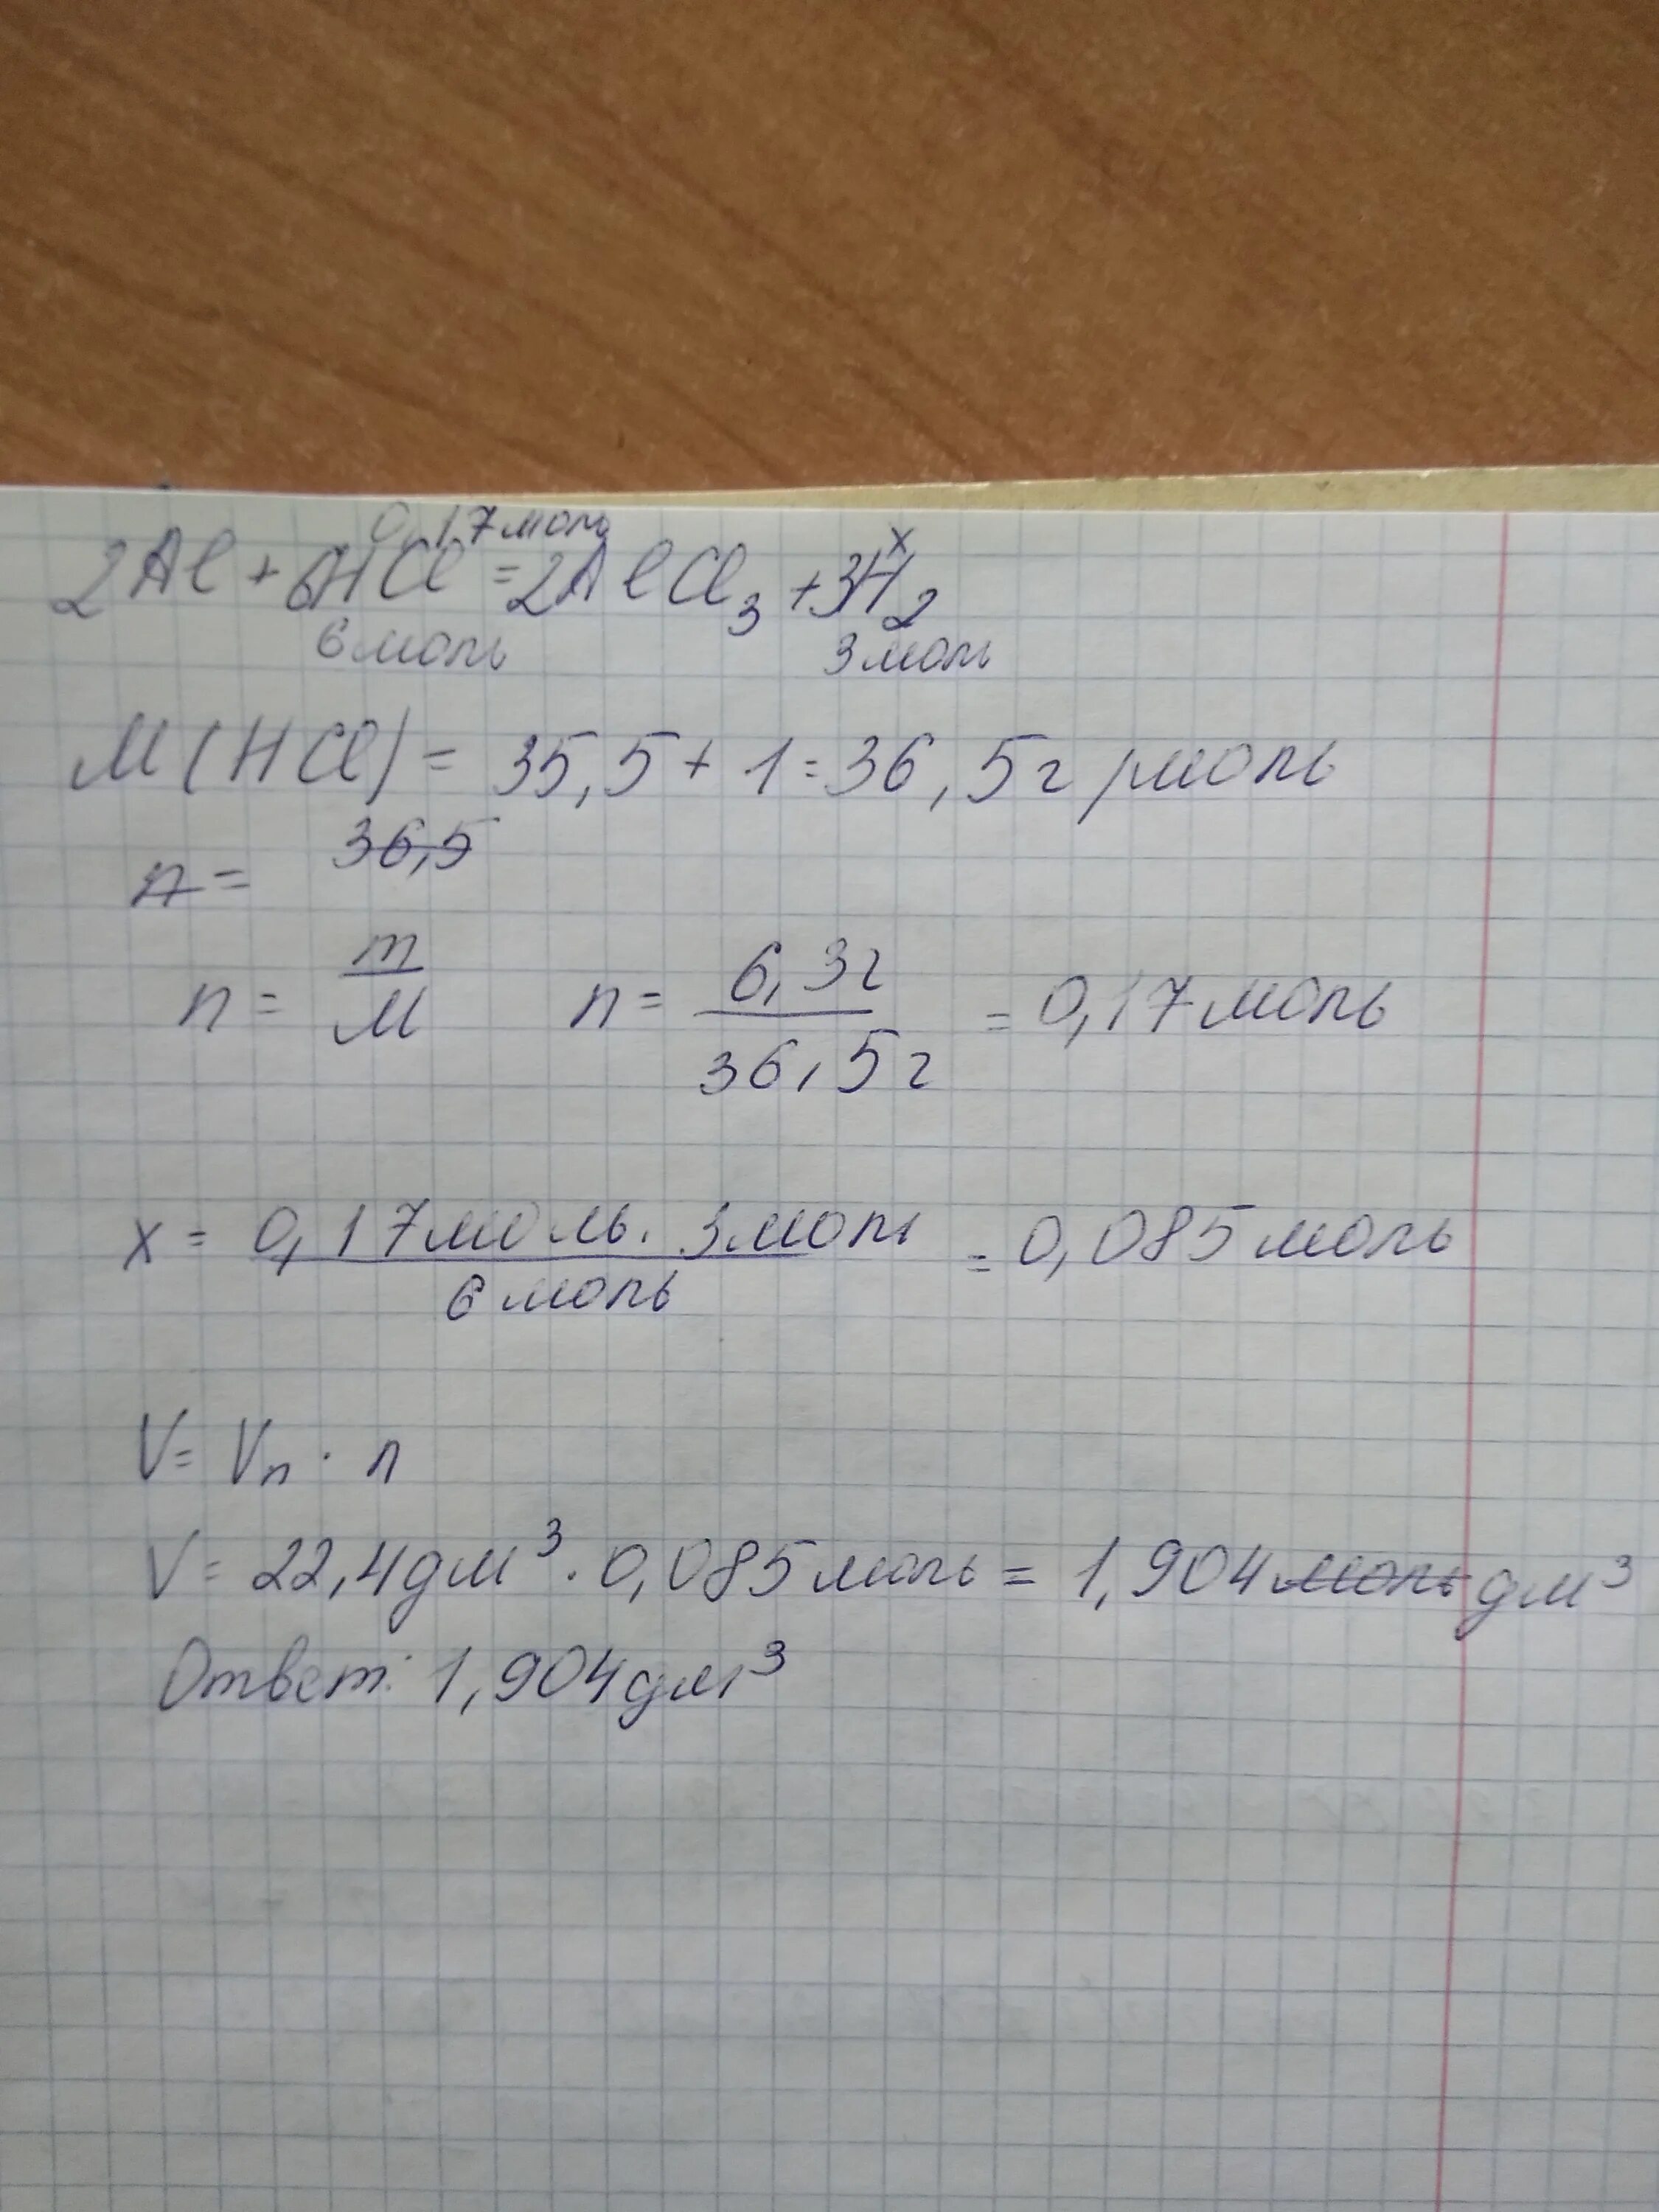 0,17моль x
2Al + 6HCl = 2AlCl3 + 3H2
6моль 3моль
M(HCl) = 35,5 + 1 = 36,5г/моль
n = 36,5
n = m/M n = 6,3г/36,5г = 0,17моль
x = 0,17моль · 3моль/6моль = 0,085моль
V = Vn · n
V = 22,4дм³ · 0,085моль = 1,904моль дм³
Ответ: 1,904дм³